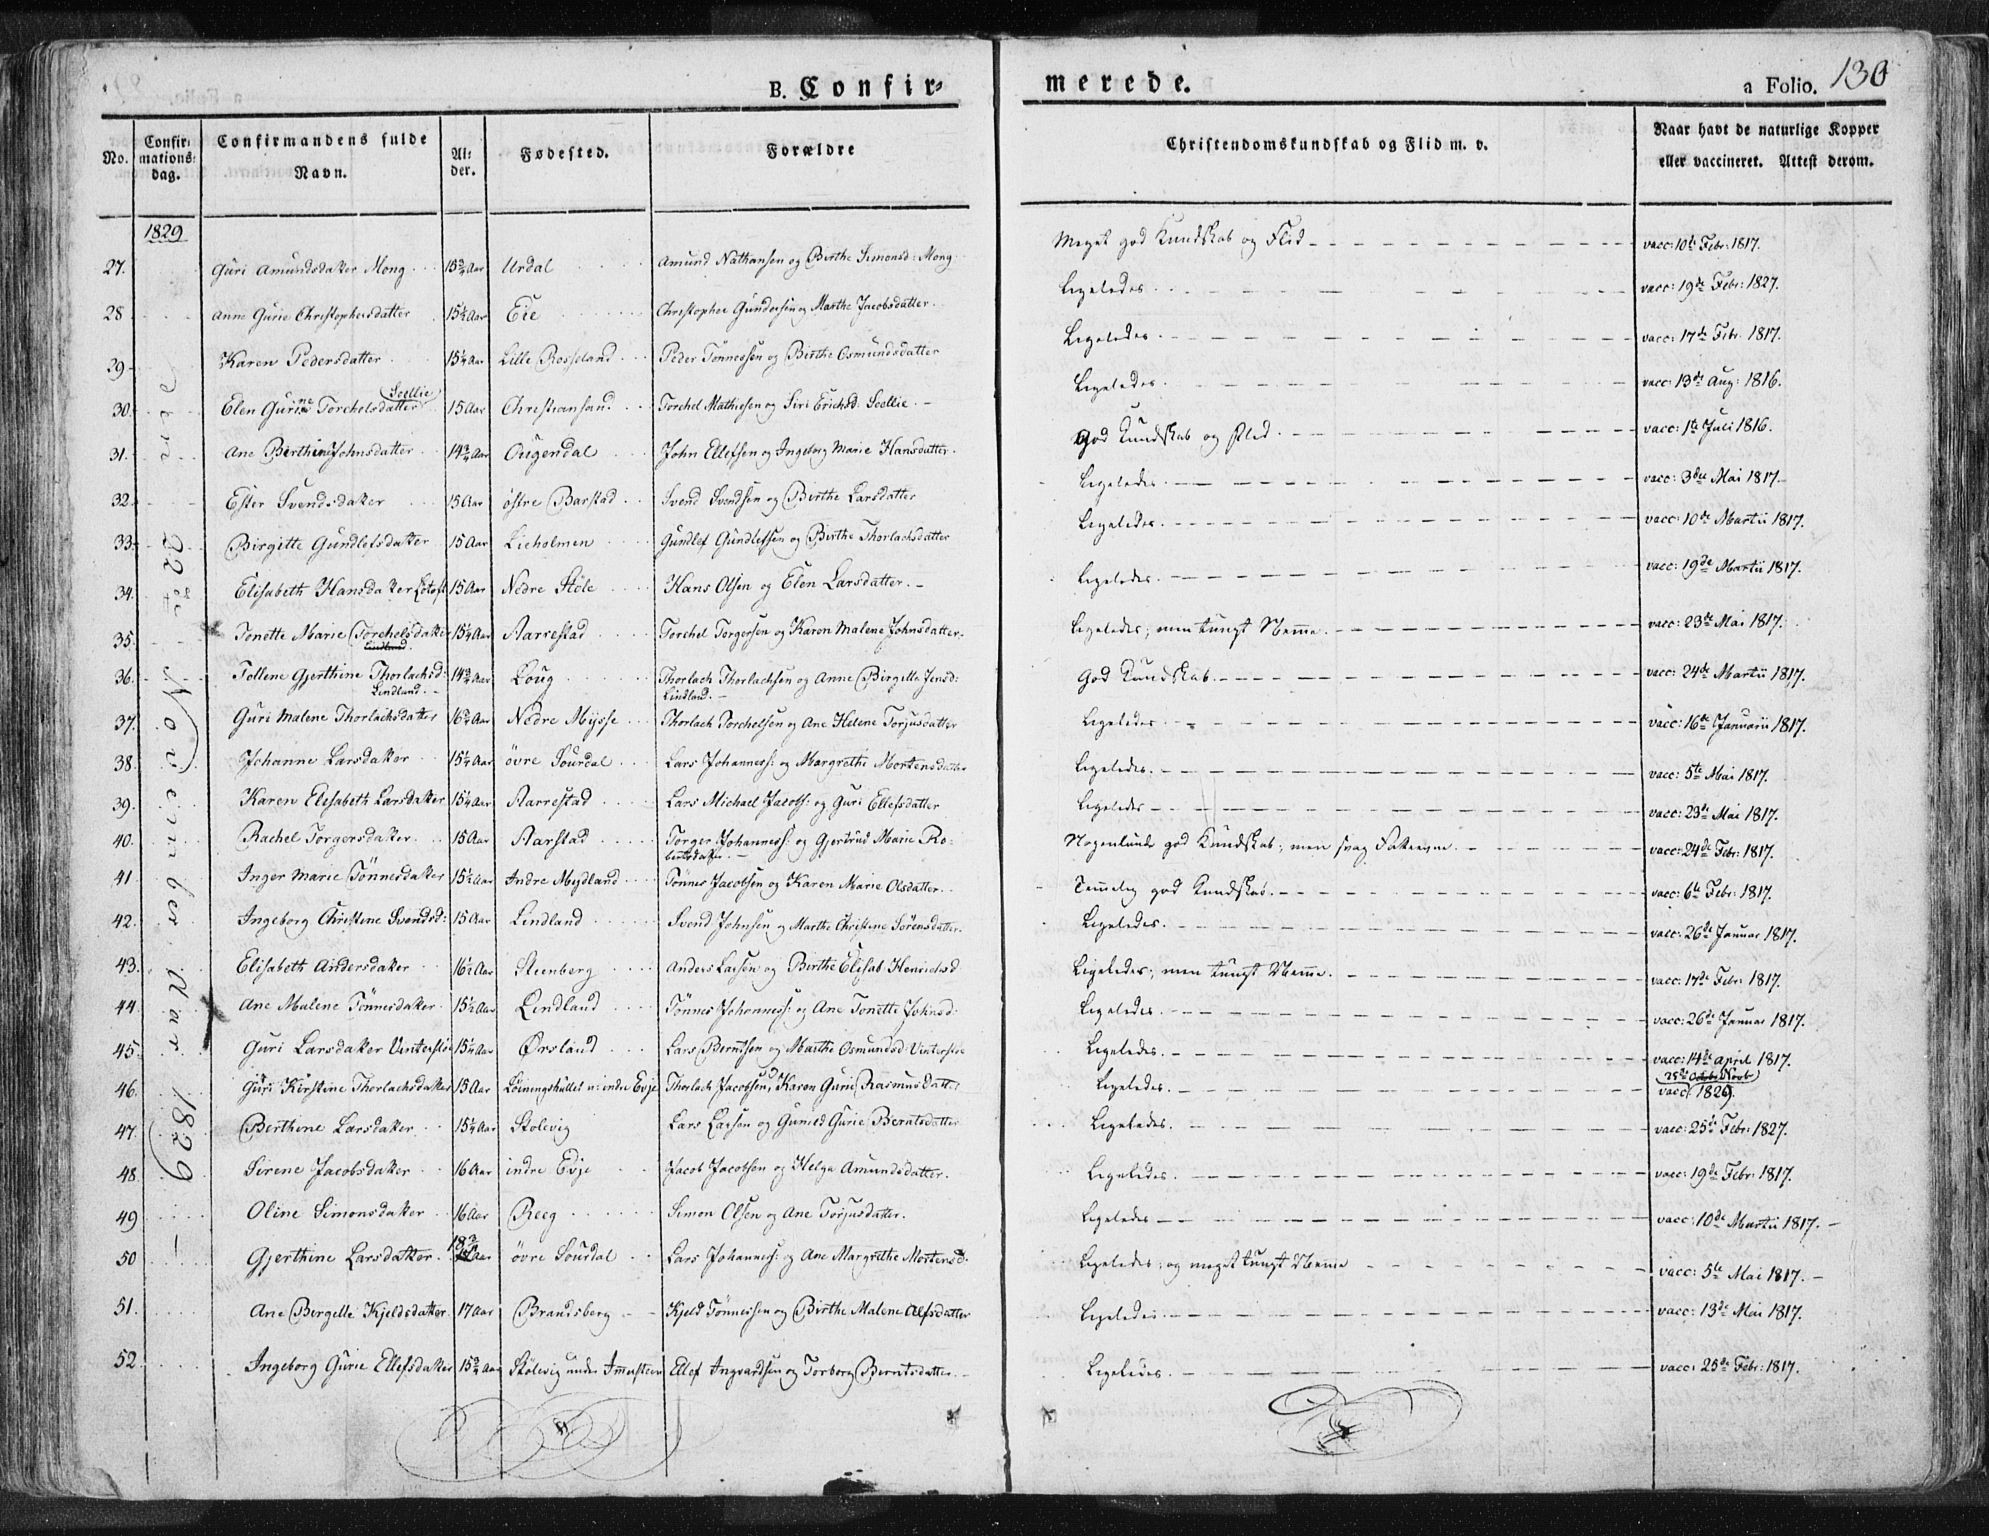 B. Confir- merede. a Folio. 130
No. Confirmations-dag. Confirmandens fulde Navn. Al-der. Fødested. Forældre Christendomskundskab og Flid m. v. Naar havt de naturlige Kopper eller vaccineret. Attest derom.
1829
den 22de November Aar 1829
27. Guri Amundsdatter Mong 15¾ Aar Urdal Amund Nathansen og Birthe Simonsd: Mong Meget god Kundskab og Flid vacc: 10de Febr: 1817.
28 Anne Gurie Christophersdatter 15½ Aar Eie Christopher Gundersen og Marthe Jacobsdatter. Ligeledes. vacc: 19de Febr: 1827.
29 Karen Pedersdatter 15¼ Aar Lille Rosseland Peder Tønnessen og Birthe Osmundsdatter Ligeledes. vacc: 17de Febr. 1817.
30. Elen Gurine Torchelsdatter Scellie 15 Aar Christiansand Torchel Mathiesen og Siri Erichsd. Scellie. Ligeledes. vacc: 13de Aug: 1816.
31. Ane Berthine Johnsdatter 14¾ Aar Ougendal John Ellefsen og Ingeborg Marie Hansdatter. God Kundskab og Flid. vacc: 1te Juli 1816.
32. Ester Svendsdatter 15 Aar østre Barstad Svend Svendsen og Birthe Larsdatter Ligeledes. vacc: 3die Mai 1817.
33. Birgitte Gundlefsdatter 15 Aar Lieholmen Gundlef Gundlefsen og Birthe Thorlachsdatter Ligeledes. vacc: 10de Martii 1817.
34. Elisabeth Hansdatter 15 Aar Nedre Støle Hans Olsen og Elen Larsdatter. Ligeledes. vacc: 19de Martii 1817.
35. Tonette Marie Torchelsdatter Lindland. 15¼ Aar Aarrestad Torchel Torgersen og Karen Malene Johnsdatter. Ligeledes; men tungt Nemme. vacc: 23de Mai 1817.
36. Tollene Gjerthine Thorlachsd: Lindland. 14¾ Aar Loug Thorlach Thorlachsen og Anne Birgitte Jensd: Lindland. God Kundskab. vacc: 24de Martii 1817.
37. Guri Malene Thorlachsdatter 16¾ Aar Nedre Mysse Thorlach Torchelsen og Ane Helene Torjusdatter Ligeledes vacc: 16de Januarii 1817.
38. Johanne Larsdatter 15¼ Aar øvre Sourdal Lars Johanness: og Margrethe Mortensdatter Ligeledes. vacc: 5te Mai 1817.
39. Karen Elisabeth Larsdatter 15¼ Aar Aarrestad Lars Michael Jacobs: og Guri Ellefsdatter Ligeledes vacc: 23de Mai 1817.
40. Rachel Torgersdatter 15 Aar Aarstad Torger Johanness: og Gjertrud Marie Ro-bertsdatter. Nogenlunde god Kundskab; men svag Fatteevne. vacc: 24de Febr: 1817.
41 Inger Marie Tønnesdatter 15½ Aar Indre Mydland Tønnes Jacobsen og Karen Marie Olsdatter. Temmelig god Kundskab. vacc: 6te Febr: 1817.
42. Ingeborg Christine Svendsd: 15 Aar Lindland Svend Johnsen og Marthe Christine Sørensdatter. Ligeledes. vacc: 26de Januar 1817.
43. Elisabeth Andersdatter 16½ Aar Steenberg Anders Larsen og Birthe Elisab Henrichsd Ligeledes; men tungt Nemme. vacc: 17de Febr: 1817.
44 Ane Malene Tønnesdatter 15½ Aar Lindland Tønnes Johanness: og Ane Tonette Johnsd: Ligeledes. vacc: 26de Januar 1817.
45. Guri Larsdatter Vinterstøe 15¼ Aar Ørsland Lars Berntsen og Marthe Osmundsd: Vinterstøe Ligeledes. vacc: 14de April 1817.
46. Guri Kirstine Thorlachsdatter 15 Aar Løiningshullet u: indre Evje Thorlach Jacobsen, Karen Gurie Rasmusdatter Ligeledes. vacc. 25de Novbr 1829.
47. Berthine Larsdatter 15¼ Aar Stolevig Lars Larsen og Gunild Gurie Berntsdatter Ligeledes. vacc: 25de Febr: 1827.
48. Sirene Jacobsdatter 16 Aar indre Evje Jacob Jacobsen og Helga Amundsdatter. Ligeledes. vacc: 19de Febr: 1817.
49 Oline Simonsdatter 16 Aar Reeg Simon Olsen og Ane Torjusdatter. Ligeledes vacc: 10de Martii 1817.
50 Gjerthine Larsdatter 18¾ Aar øvre Sourdal Lars Johanness: og Ane Margrethe Mortensd. Ligeledes; og meget tungt Nemme vacc: 5te Mai 1817.
51. Ane Birgitte Kjeldsdatter 17 Aar Brandsberg Kjeld Tønnessen og Birthe Malene Alfsdatter Ligeledes vacc: 13de Mai 1817.
52. Ingeborg Gurie Ellefsdatter 15¾ Aar Stølevig under Immersteen Ellef Ingvardsen og Torborg Berntsdatter. Ligeledes. vacc: 25de Febr: 1817.